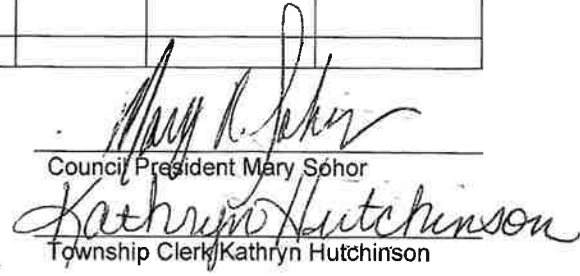 Mary R. Sohor
Council President Mary Sohor
Kathryn Hutchinson
Township Clerk Kathryn Hutchinson